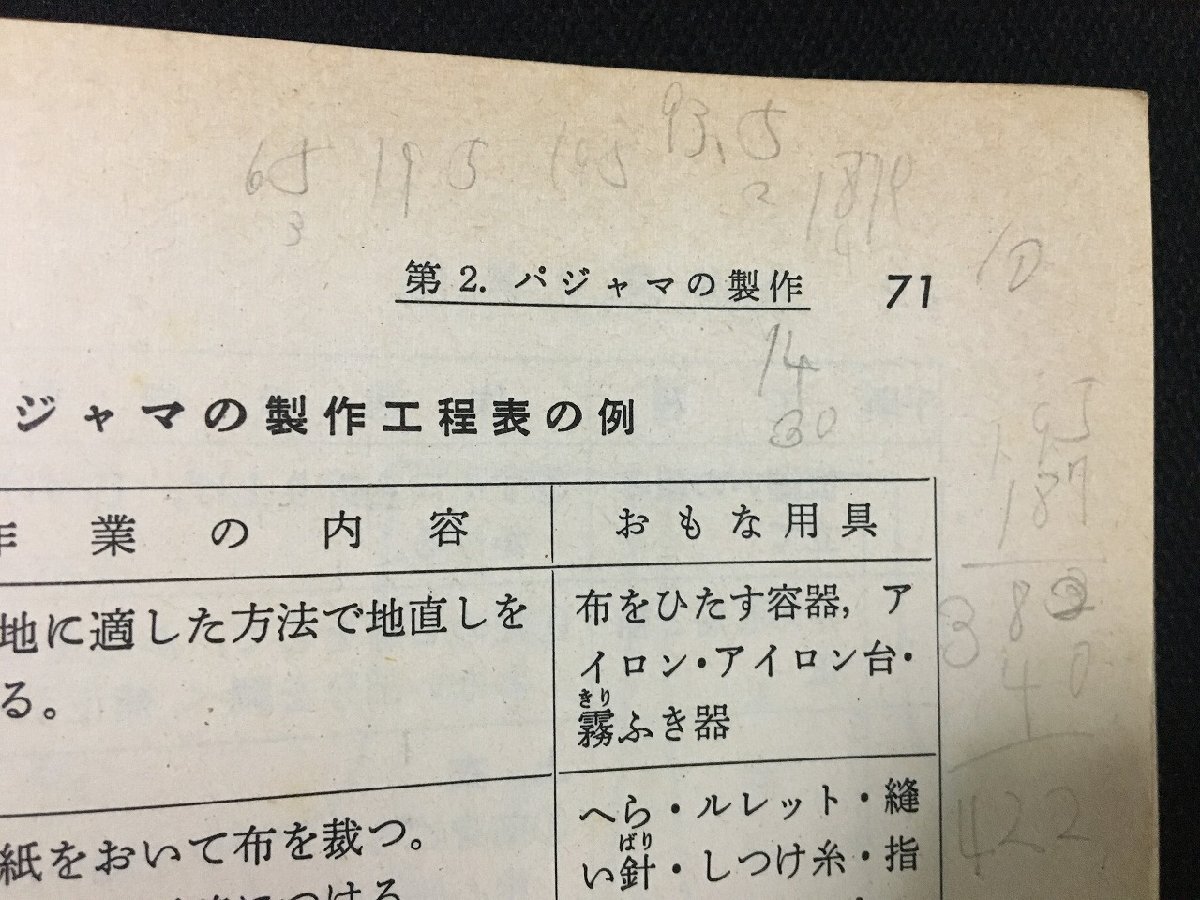 65 195 93.5
3 2 187
第2. パジャマの製作 71
10
14
30
ジャマの製作工程表の例
195
187
382
40
422
業の内容 おもな用具
地に適した方法で地直しを
る。
布をひたす容器, ア
イロン・アイロン台・
きり
霧ふき器
紙をおいて布を裁つ。
へら・ルレット・縫
ばり
い針・しつけ糸・指